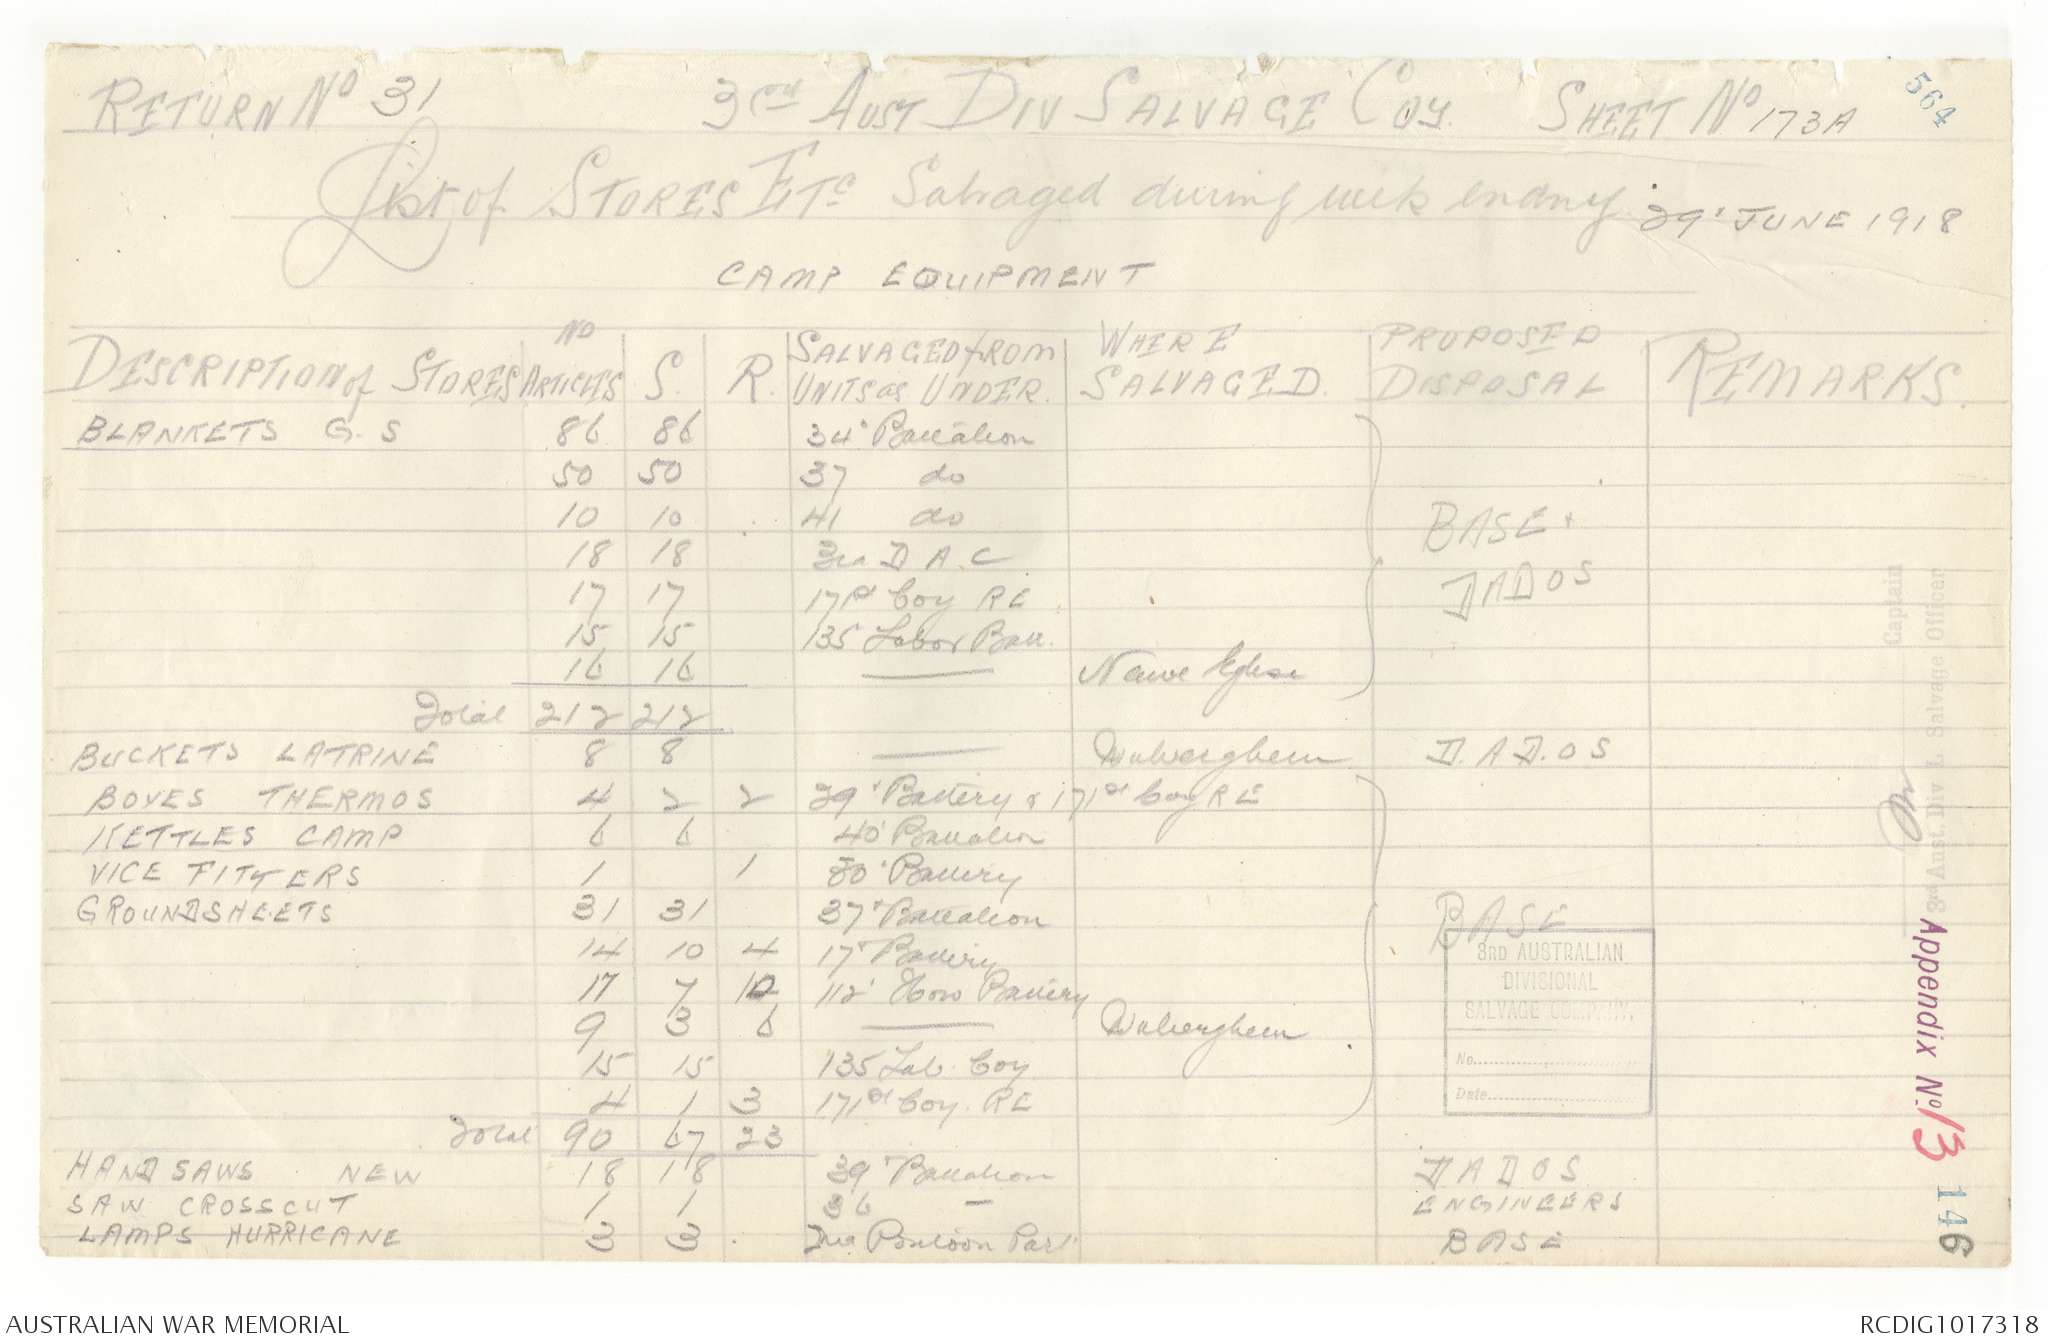 RETURN No 31 3RD AUST DIV SALVAGE COY. SHEET No 173A
564
List of STORES ETC Salvaged during week ending 29' JUNE 1918
CAMP EQUIPMENT
DESCRIPTION of STORES No ARTICLES S. R. SALVAGED FROM UNITS as UNDER. WHERE SALVAGED. PROPOSED DISPOSAL REMARKS.
BLANKETS G.S 86 86 34' Battalion
50 50 37 do
10 10 41 do BASE +
18 18 3rd D A.C
17 17 171st Coy RE DADOS
15 15 135 Labor Batt.
16 16 — Neuve Eglise
Total 212 212
BUCKETS LATRINE 8 8 — Wulverghem D.A.D.OS
BOXES THERMOS 4 2 2 29' Battery & 171st Coy RE
KETTLES CAMP 6 6 40' Battalion
VICE FITTERS 1 1 30' Battery
GROUNDSHEETS 31 31 37' Battalion BASE
14 10 4 17' Battery
17 7 10 112' How Battery
9 3 6 — Wulverghem
15 15 135 Lab. Coy
4 1 3 171st Coy. RE
Total 90 67 23
HANDSAWS NEW 18 18 39' Battalion DADOS
SAW CROSSCUT 1 1 36 — ENGINEERS
LAMPS HURRICANE 3 3 2nd Pontoon Park BASE
3RD AUSTRALIAN
DIVISIONAL
SALVAGE COMPANY.
No.
Date
Captain
3rd Aust. Div. L. Salvage Officer
Appendix No. 13
146
AUSTRALIAN WAR MEMORIAL RCDIG1017318